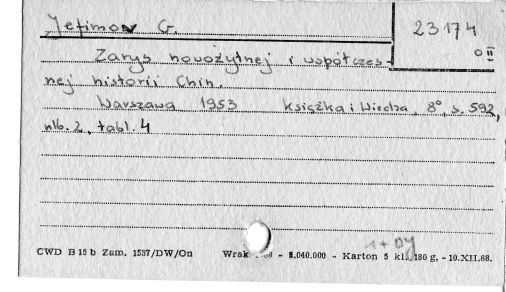 Jefimow G. 23174
0 II
Zarys nowożytnej i współczes-
nej historii Chin.
Warszawa 1953 Książka i Wiedza, 8°, s. 592,
nlb. 2, tabl. 4
1 + DY
CWD B 15 b Zam. 1537/DW/On Wrak - 5.040.000 - Karton 5 kl. 180 g, - 10.XII.68.